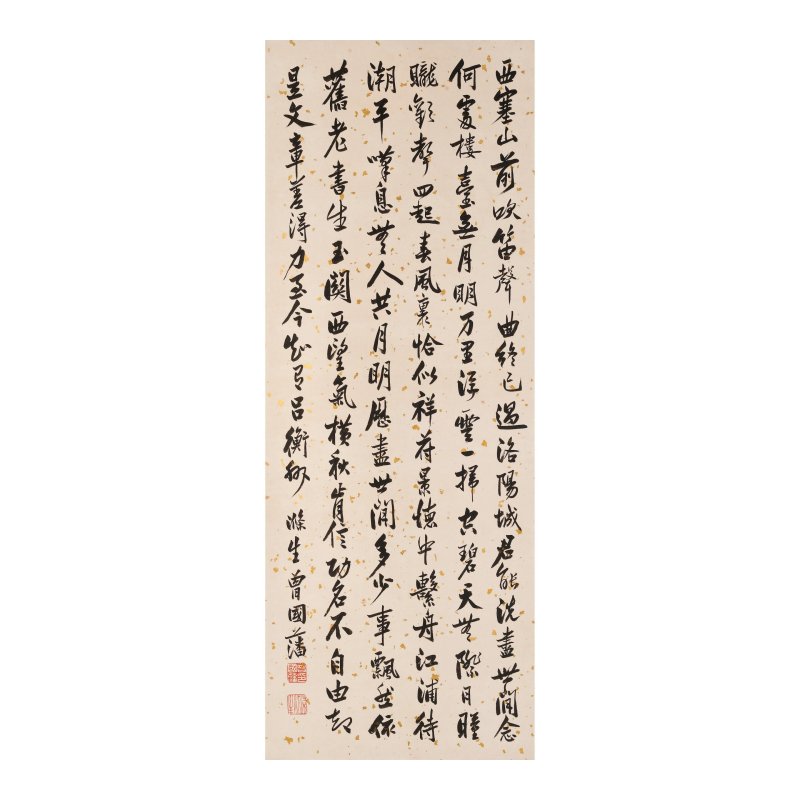 西塞山前吹笛聲曲終已過洛陽城君能洗盡世間念
何處樓臺無月明万里浮雲一掃空碧天無際月曈
曨歡聲四起春風裏恰似祥符景德中繫舟江浦待
潮平嘆息無人共月明歷盡世間多少事飄然依
舊老書生玉關西望氣橫秋肯信功名不自由却
是文章差得力至今知有呂衡州 滌生曾國藩